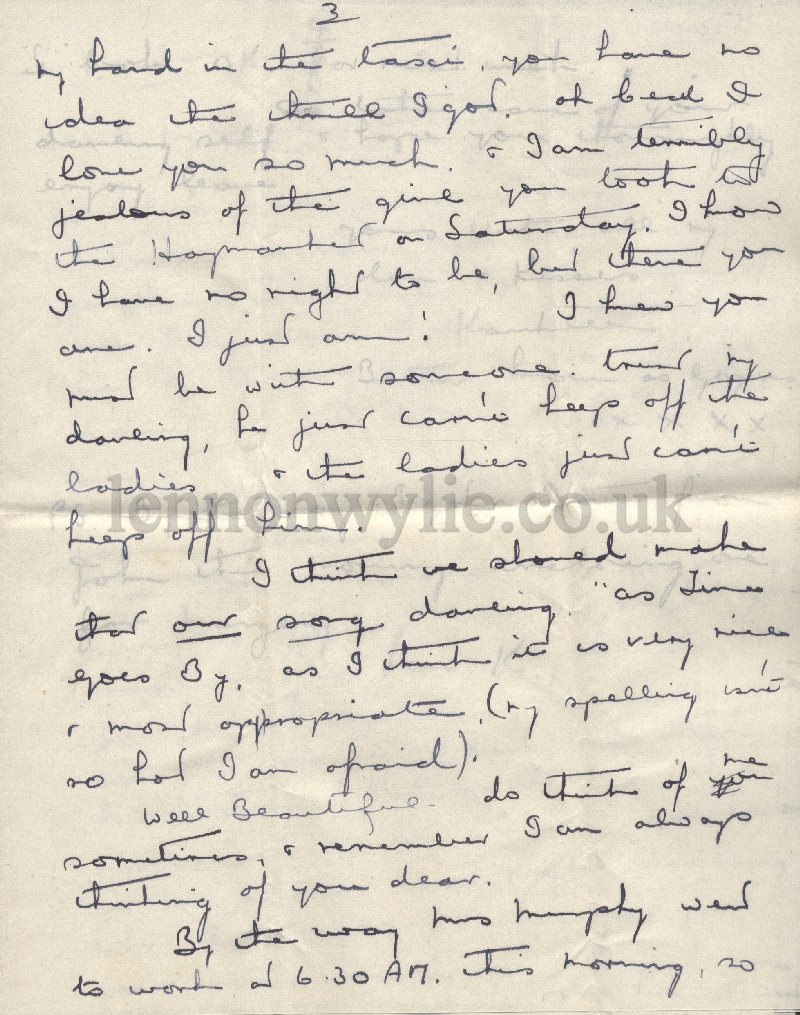 3
my hand in the taxi, you have no
idea the thrill I got. oh heck I
love you so much. & I am terribly
jealous of the girl you took to
the Haymarket on Saturday. I know
I have no right to be, but there you
are. I just am! I knew you
must be with someone. trust my
darling, he just can't keep off the
ladies & the ladies just can't
keep off him.
I think we should make
that our song darling. "as Time
goes By, as I think it is very nice
& most appropriate, (my spelling isn't
so hot I am afraid).
Well Beautiful do think of me
sometimes, & remember I am always
thinking of you dear.
By the way Mrs Murphy went
to work at 6.30 AM. this morning, so
lennonwylie.co.uk